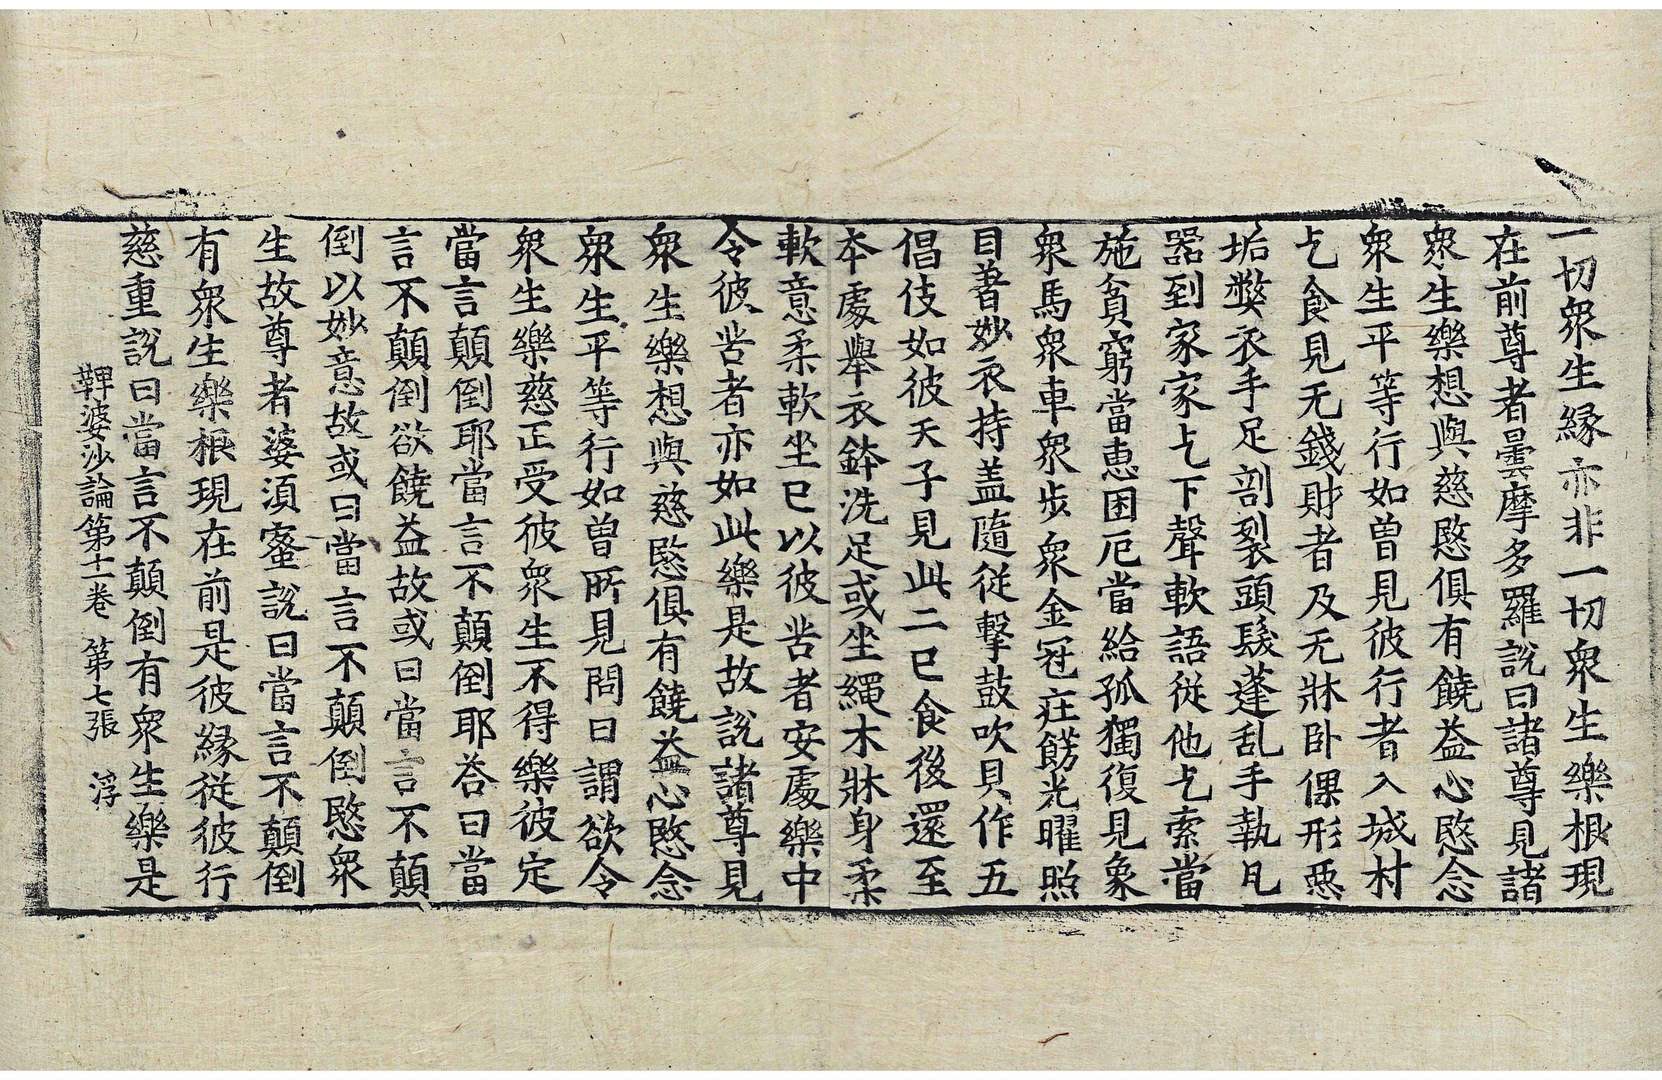 一切衆生縁亦非一切衆生樂根現
在前尊者曇摩多羅說曰諸尊見諸
衆生樂想與慈愍俱有饒益心愍念
衆生平等行如曾見彼行者入城村
乞食見无錢財者及无牀卧倮形惡
垢弊衣手足剖裂頭髮蓬乱手執瓦
器到家家乞下聲軟語従他乞索當
施貧窮當惠困厄當給孤獨復見象
衆馬衆車衆歩衆金冠在餝光曜照
目著妙衣持盖隨従擊鼓吹貝作五
倡伎如彼天子見此二已食後還至
本處舉衣鉢洗足或坐繩木牀身柔
軟意柔軟坐已以彼苦者安處樂中
令彼苦者亦如此樂是故說諸尊見
衆生樂想與慈愍俱有饒益心愍念
衆生平等行如曾所見問曰謂欲令
衆生樂慈正受彼衆生不得樂彼定
當言顛倒耶當言不顛倒耶荅曰當
言不顛倒欲饒益故或曰當言不顛
倒以妙意故或曰當言不顛倒愍衆
生故尊者婆湏蜜說曰當言不顛倒
有衆生樂根現在前是彼縁従彼行
慈重說曰當言不顛倒有衆生樂是
鞞婆沙論第十一卷 第七張 浮